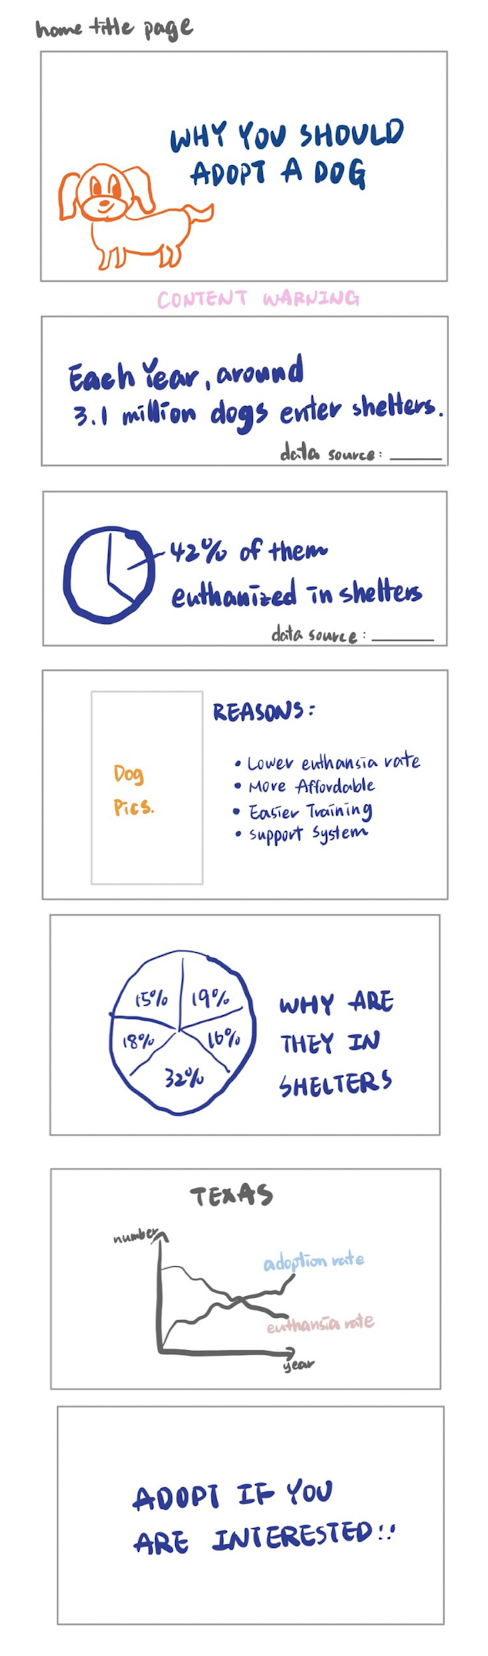 home title page
WHY YOU SHOULD
ADOPT A DOG
CONTENT WARNING
Each Year, around
3.1 million dogs enter shelters.
data source: ______
42% of them
euthanized in shelters
data source: ______
REASONS:
Dog
Pics.
• Lower euthansia rate
• More Affordable
• Easier Training
• Support System
15%
19%
18%
16%
32%
WHY ARE
THEY IN
SHELTERS
TEXAS
number
adoption rate
euthansia rate
year
ADOPT IF YOU
ARE INTERESTED!!